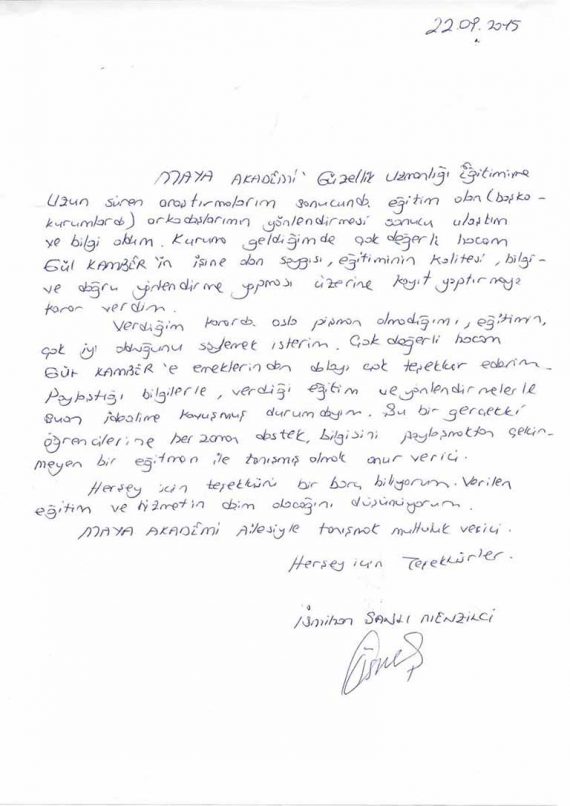 22.09.2015
MAYA AKADEMİ' Güzellik Uzmanlığı Eğitimime
Uzun süren araştırmalarım sonucunda eğitim alan (başka
kurumlarda) arkadaşlarımın yönlendirmesi sonucu ulaştım
ve bilgi aldım. Kuruma geldiğimde çok değerli hocam
Gül KAMBER'in işine olan saygısı, eğitiminin kalitesi, bilgi
ve doğru yönlendirme yapması üzerine kayıt yaptırmaya
karar verdim.
Verdiğim kararda asla pişman olmadığımı, eğitimin,
çok iyi olduğunu söylemek isterim. Çok değerli hocam
Gül KAMBER'e emeklerinden dolayı çok teşekkür ederim.
Paylaştığı bilgilerle, verdiği eğitim ve yönlendirmelerle
şuan idealime kavuşmuş durumdayım. Şu bir gerçekki
öğrencilerine her zaman destek, bilgisini paylaşmaktan çekin-
meyen bir eğitmen ile tanışmış olmak onur verici.
Herşey için teşekkürü bir borç biliyorum. Verilen
eğitim ve hizmetin daim olacağını düşünüyorum.
MAYA AKADEMİ Ailesiyle tanışmak mutluluk verici.
Herşey için Teşekkürler.
İsmihan SANLI MENZİLCİ